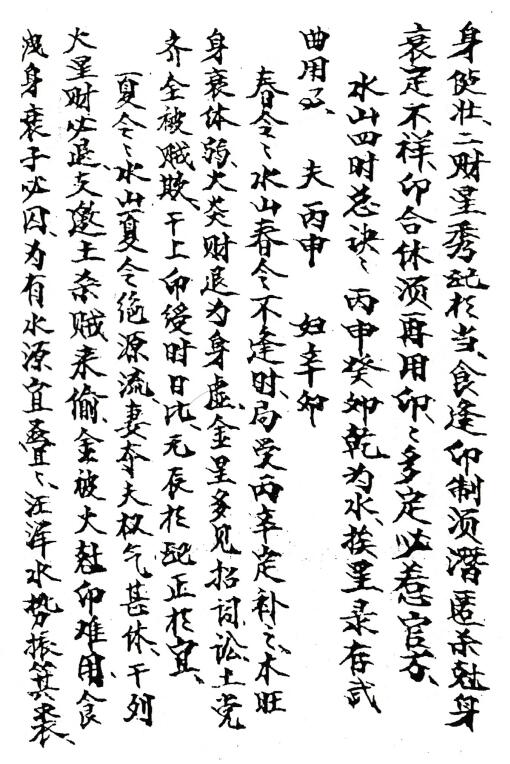 身健壮、二财星秀配於当、食逢印制须潜匿杀尅身
衰定不祥印合休须再用印、印多定必惹官方、
水山四时总诀、丙申癸卯乾为水、挨星录存武
曲用之、　夫丙申　妇辛卯
春令、水山春令不逢时、局受丙辛定补之、木旺
身衰体弱、火炎财退为身虚、金星多见招词讼、土党
齐全被贼欺、干上印绶时日比、元辰於配正於宜、
夏令、水山夏令绝源流、妻夺夫权气甚休、干列
火星财必退、支邀土杀贼来偷、金被火尅印难用、食
洩身衰子必囚、为有水源宜叠、汪洋水势振箕裘、